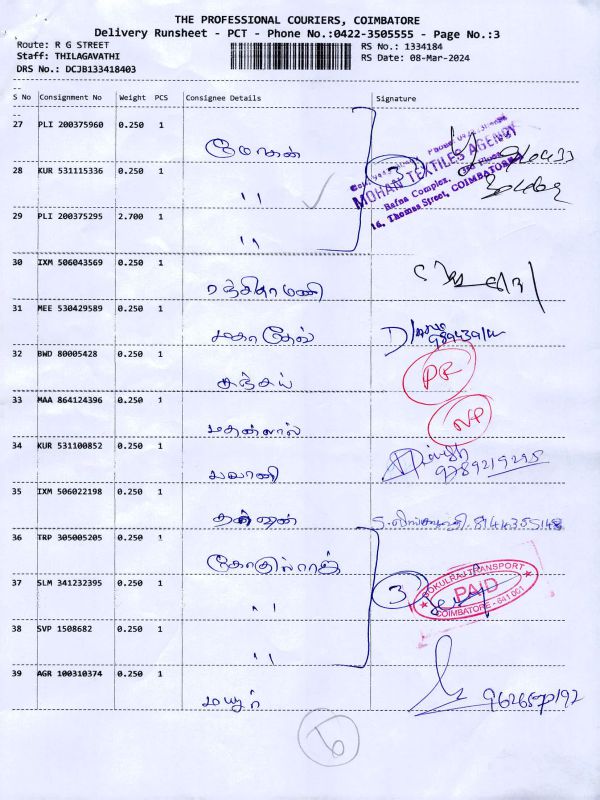 THE PROFESSIONAL COURIERS, COIMBATORE
Delivery Runsheet - PCT - Phone No.:0422-3505555 - Page No.:3
Route: R G STREET
RS No.: 1334184
Staff: THILAGAVATHI
RS Date: 08-Mar-2024
DRS No.: DCJB133418403
S No Consignment No Weight PCS Consignee Details Signature
27 PLI 200375960 0.250 1
மோகன்
3
MOHAN TEXTILES AGENCY
Bafna Complex,
16, Thomas Street, COIMBATORE
28 KUR 531115336 0.250 1
''
29 PLI 200375295 2.700 1
''
30 IXM 506043569 0.250 1
ரஞ்சிதாமணி
31 MEE 530429589 0.250 1
மகாதேவ்
32 BWD 80005428 0.250 1
சஞ்சய்
33 MAA 864124396 0.250 1
மதன்லால்
34 KUR 531100852 0.250 1
பவானி
9789219295
35 IXM 506022198 0.250 1
36 TRP 305005205 0.250 1
கோகுல்ராஜ்
37 SLM 341232395 0.250 1
''
3
GOKULRAJ TRANSPORT
PAID
COIMBATORE - 641 001
38 SVP 1508682 0.250 1
''
39 AGR 100310374 0.250 1
மயூர்